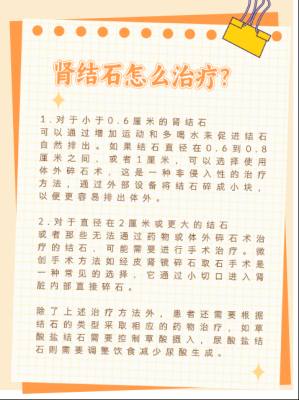 肾结石怎么治疗?
1.对于小于0.6厘米的肾结石
可以通过增加运动和多喝水来促进结石
自然排出。如果结石直径在0.6到0.8
厘米之间、或者1厘米,可以选择使用
体外碎石术,这是一种非侵入性的治疗
方法,通过外部设备将结石碎成小块,
以便更容易排出体外。
2.对于直径在2厘米或更大的结石
或者那些无法通过药物或体外碎石术治
疗的结石,可能需要进行手术治疗。微
创手术方法如经皮肾镜碎石取石手术是
一种常见的选择,它通过小切口进入肾
脏内部直接碎石。
除了上述治疗方法外,患者还需要根据
结石的类型采取相应的药物治疗,如草
酸盐结石需要控制草酸摄入,尿酸盐结
石则需要调整饮食减少尿酸生成。